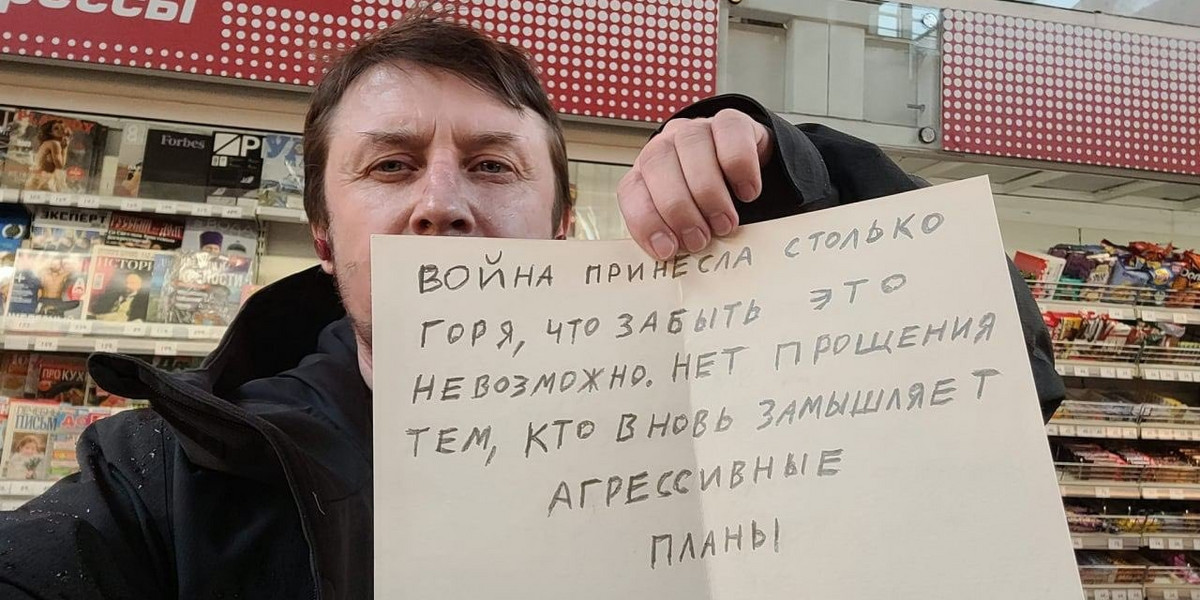 рессы
Forbes
ЭКСПЕРТ
ВОЙНА ПРИНЕСЛА СТОЛЬКО
ГОРЯ, ЧТО ЗАБЫТЬ ЭТО
НЕВОЗМОЖНО. НЕТ ПРОЩЕНИЯ
ТЕМ, КТО ВНОВЬ ЗАМЫШЛЯЕТ
АГРЕССИВНЫЕ
ПЛАНЫ